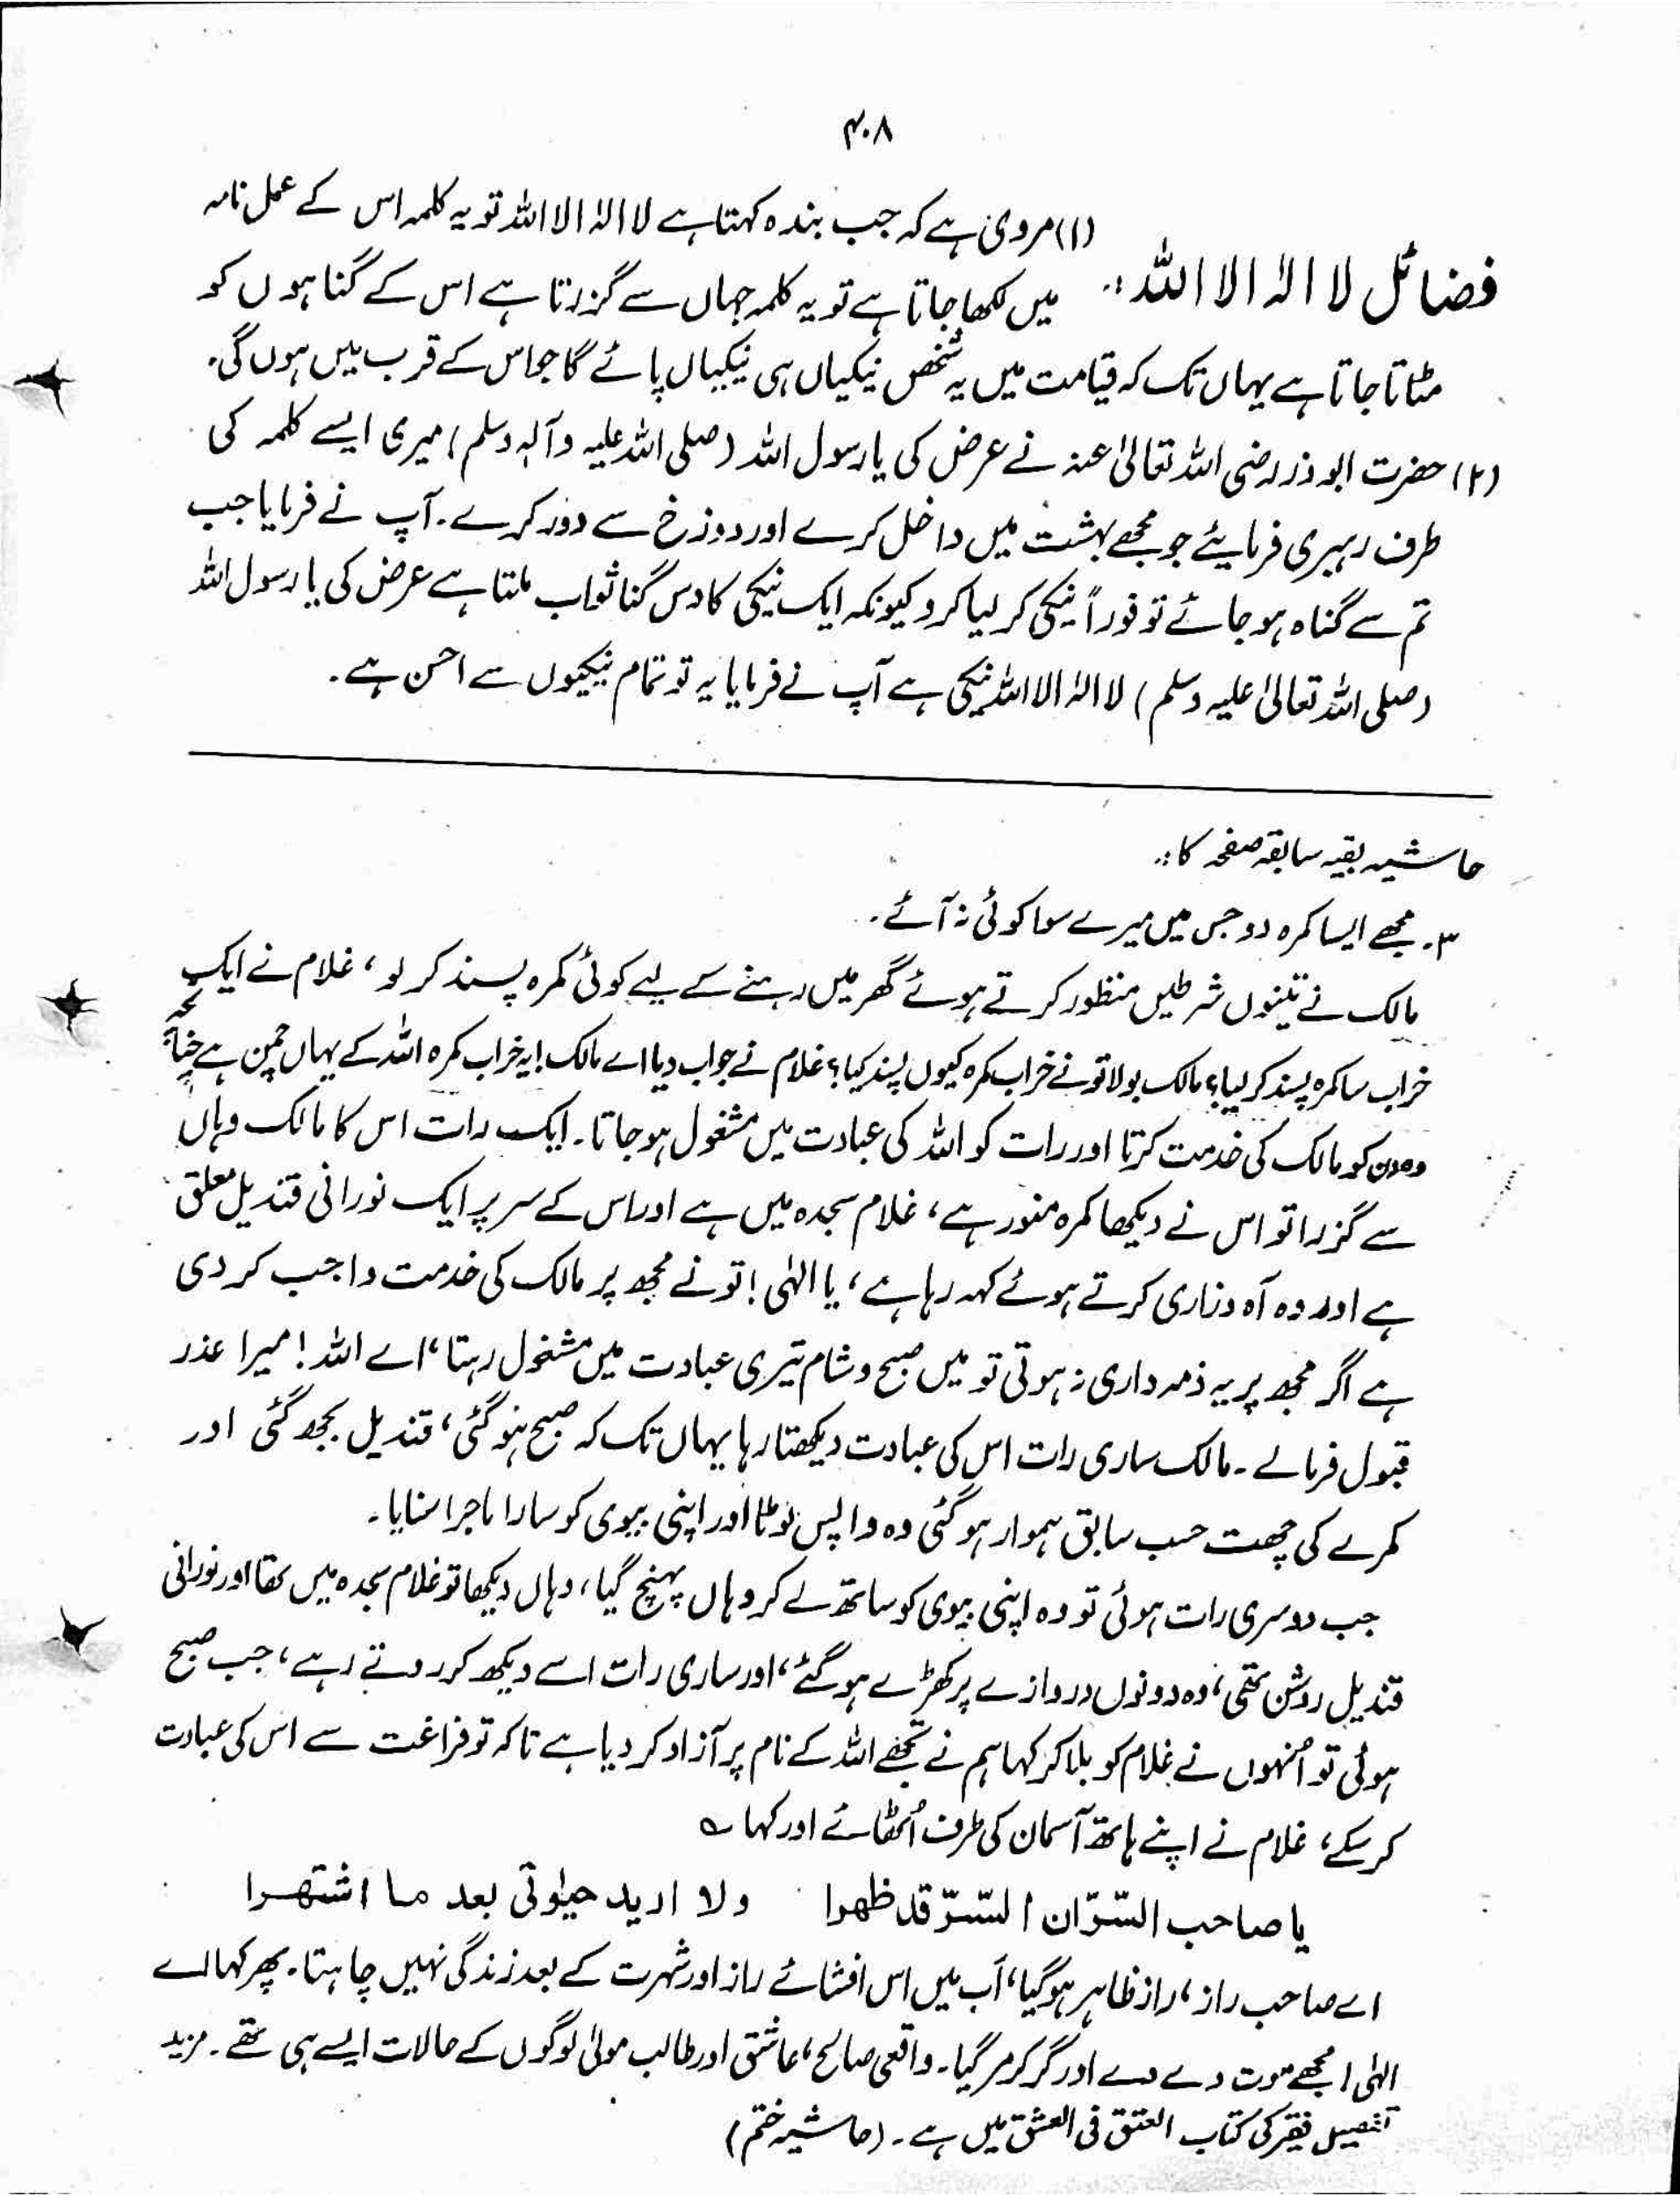 ۴۰۸
فضائل لا الٰہ الا اللہ:۔
(۱) مروی ہے کہ جب بندہ کہتا ہے لا الٰہ الا اللہ تو یہ کلمہ اس کے عمل نامہ
میں لکھا جاتا ہے تو یہ کلمہ جہاں سے گزرتا ہے اس کے گناہوں کو
مٹاتا جاتا ہے یہاں تک کہ قیامت میں یہ شخص نیکیاں ہی نیکیاں پائے گا جو اس کے قرب میں ہوں گی۔
(۲) حضرت ابوذر رضی اللہ تعالیٰ عنہ نے عرض کی یا رسول اللہ (صلی اللہ علیہ وآلہ وسلم) میری ایسے کلمہ کی
طرف رہبری فرمایئے جو مجھے بہشت میں داخل کرے اور دوزخ سے دور کرے۔ آپ نے فرمایا جب
تم سے گناہ ہو جائے تو فوراً نیکی کر لیا کرو کیونکہ ایک نیکی کا دس گنا ثواب ملتا ہے عرض کی یا رسول اللہ
(صلی اللہ تعالیٰ علیہ وسلم) لا الٰہ الا اللہ نیکی ہے آپ نے فرمایا یہ تو تمام نیکیوں سے احسن ہے۔
حاشیہ بقیہ سابقہ صفحہ کا:۔
۳۔ مجھے ایسا کمرہ دو جس میں میرے سوا کوئی نہ آئے۔
مالک نے تینوں شرطیں منظور کرتے ہوئے گھر میں رہنے کے لیے کوئی کمرہ پسند کر لو، غلام نے ایک
خراب سا کمرہ پسند کر لیا؟ مالک بولا تو نے خراب کمرہ کیوں پسند کیا؟ غلام نے جواب دیا اے مالک! یہ خراب کمرہ اللہ کے یہاں چمن ہے چنانچہ
وہ دن کو مالک کی خدمت کرتا اور رات کو اللہ کی عبادت میں مشغول ہو جاتا۔ ایک رات اس کا مالک وہاں
سے گزرا تو اس نے دیکھا کمرہ منور ہے، غلام سجدہ میں ہے اور اس کے سر پر ایک نورانی قندیل معلق
ہے اور وہ آہ وزاری کرتے ہوئے کہہ رہا ہے، یا الٰہی! تو نے مجھ پر مالک کی خدمت واجب کر دی
ہے اگر مجھ پر یہ ذمہ داری نہ ہوتی تو میں صبح و شام تیری عبادت میں مشغول رہتا، اے اللہ! میرا عذر
قبول فرما لے۔ مالک ساری رات اس کی عبادت دیکھتا رہا یہاں تک کہ صبح ہو گئی، قندیل بجھ گئی اور
کمرے کی چھت حسب سابق ہموار ہو گئی وہ واپس لوٹا اور اپنی بیوی کو سارا ماجرا سنایا۔
جب دوسری رات ہوئی تو وہ اپنی بیوی کو ساتھ لے کر وہاں پہنچ گیا، وہاں دیکھا تو غلام سجدہ میں تھا اور نورانی
قندیل روشن تھی، وہ دونوں دروازے پر کھڑے ہو گئے، اور ساری رات اسے دیکھ کر روتے رہے، جب صبح
ہوئی تو اُنھوں نے غلام کو بلا کر کہا ہم نے تجھے اللہ کے نام پر آزاد کر دیا ہے تاکہ تو فراغت سے اس کی عبادت
کر سکے، غلام نے اپنے ہاتھ آسمان کی طرف اُٹھائے اور کہا ؎
یا صاحب السّرّ ان السّرّ قد ظهرا ولا ارید حیٰوتی بعد ما اشتهرا
اے صاحب راز، راز ظاہر ہو گیا، اب میں اس افشائے راز اور شہرت کے بعد زندگی نہیں چاہتا۔ پھر کہا اے
الٰہی! مجھے موت دے دے اور گر کر مر گیا۔ واقعی صالح، عاشق اور طالب مولیٰ لوگوں کے حالات ایسے ہی تھے۔ مزید
تفصیل فقیر کی کتاب العتق فی العشق میں ہے۔ (حاشیہ ختم)